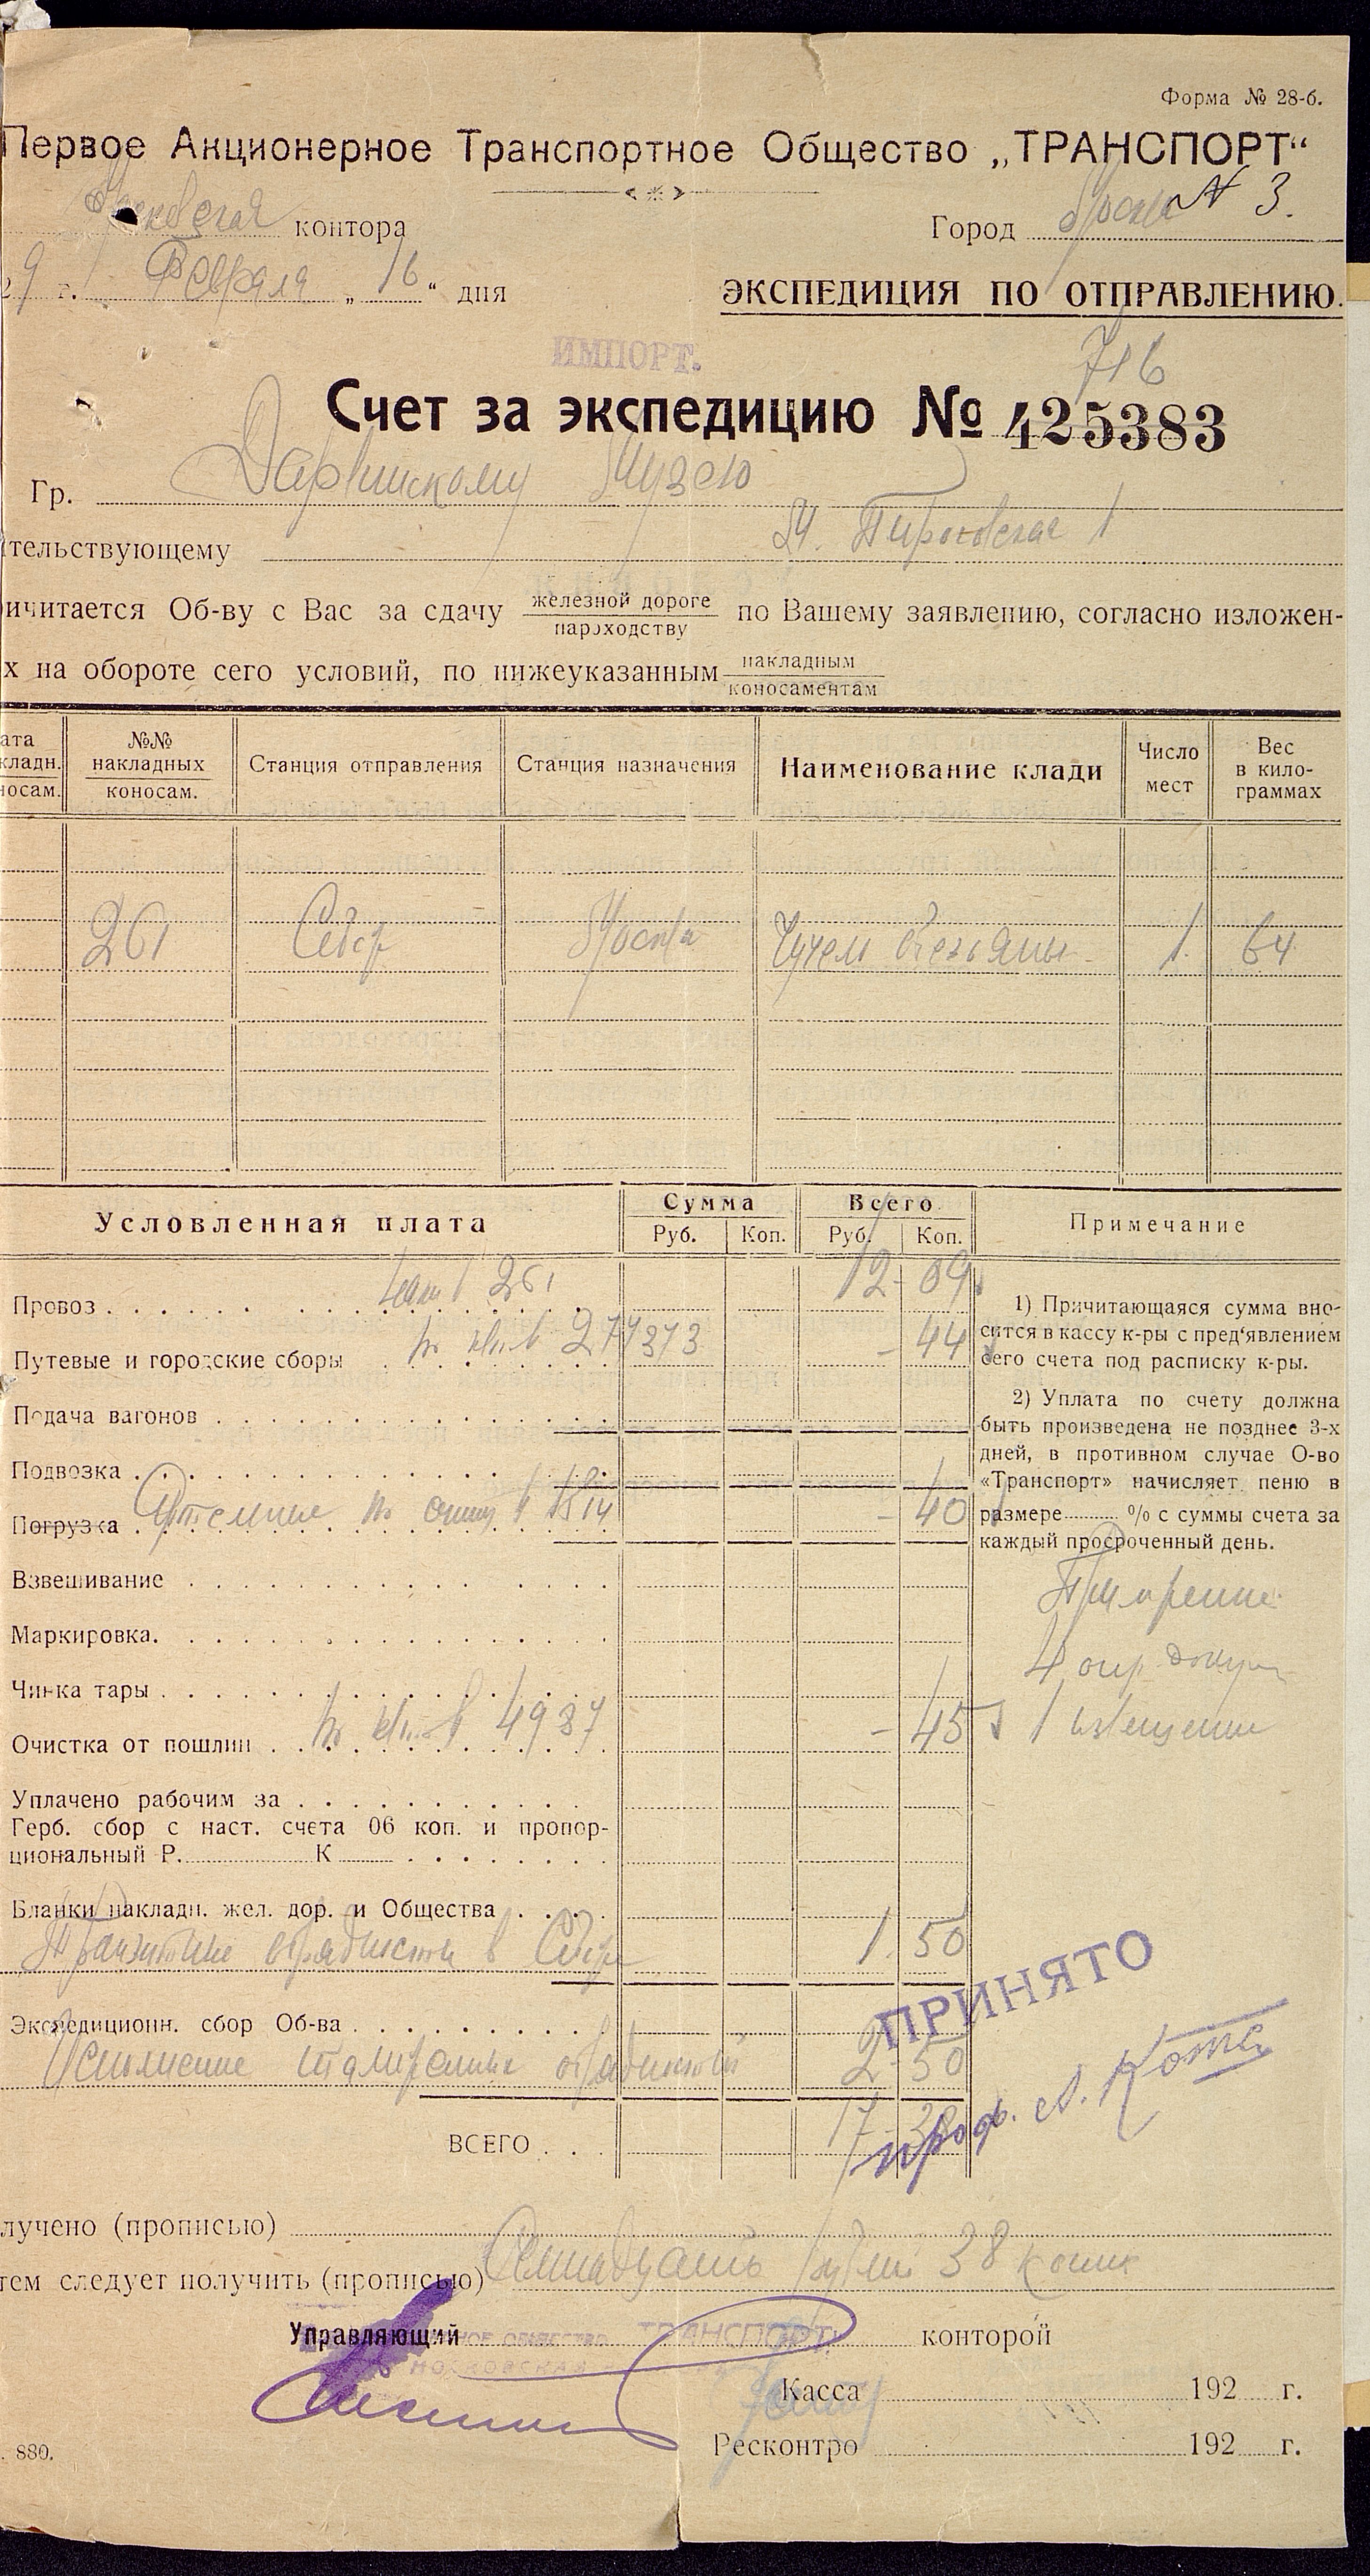 Форма № 28-б.
Первое Акционерное Транспортное Общество „ТРАНСПОРТ“
Московская контора
Город Москва № 3.
29 г. Февраля „ 16 “ дня
ЭКСПЕДИЦИЯ ПО ОТПРАВЛЕНИЮ.
ИМПОРТ.
716
Счет за экспедицию № 425383
Гр. Дарвинскому Музею
тельствующему М. Пироговская 1
ичитается Об-ву с Вас за сдачу железной дороге
пароходству
по Вашему заявлению, согласно изложен-
х на обороте сего условий, по нижеуказанным накладным
коносаментам
ата
кладн.
носам.
№№
накладных
коносам.
Станция отправления
Станция назначения
Наименование клади
Число
мест
Вес
в кило-
граммах
261 Себеж Москва Чучело обезьяны 1. 64
Условленная плата
Сумма
Руб. Коп.
Всего
Руб. Коп.
Примечание
Провоз 261 12 - 09
Путевые и городские сборы 274373 - 44
Подача вагонов
Подвозка
Погрузка - 40
Взвешивание
Маркировка.
Чинка тары
Очистка от пошлин 4937 - 45
Уплачено рабочим за
Герб. сбор с наст. счета 06 коп. и пропор-
циональный Р. К
Бланки накладн. жел. дор. и Общества
в Себеж 1. 50
Экспедиционн. сбор Об-ва
Исполнение 2 - 50
ВСЕГО 17 - 38
1) Причитающаяся сумма вно-
сится в кассу к-ры с пред‘явлением
сего счета под расписку к-ры.
2) Уплата по счету должна
быть произведена не позднее 3-х
дней, в противном случае О-во
«Транспорт» начисляет пеню в
размере % с суммы счета за
каждый просроченный день.
4
1 извещение
ПРИНЯТО
проф. А. Котс
лучено (прописью)
тем следует получить (прописью) Семнадцать рублей 38 копеек
Управляющий конторой
ТРАНСПОРТ
МОСКОВСКАЯ
Касса 192 г.
Ресконтро 192 г.
. 880.